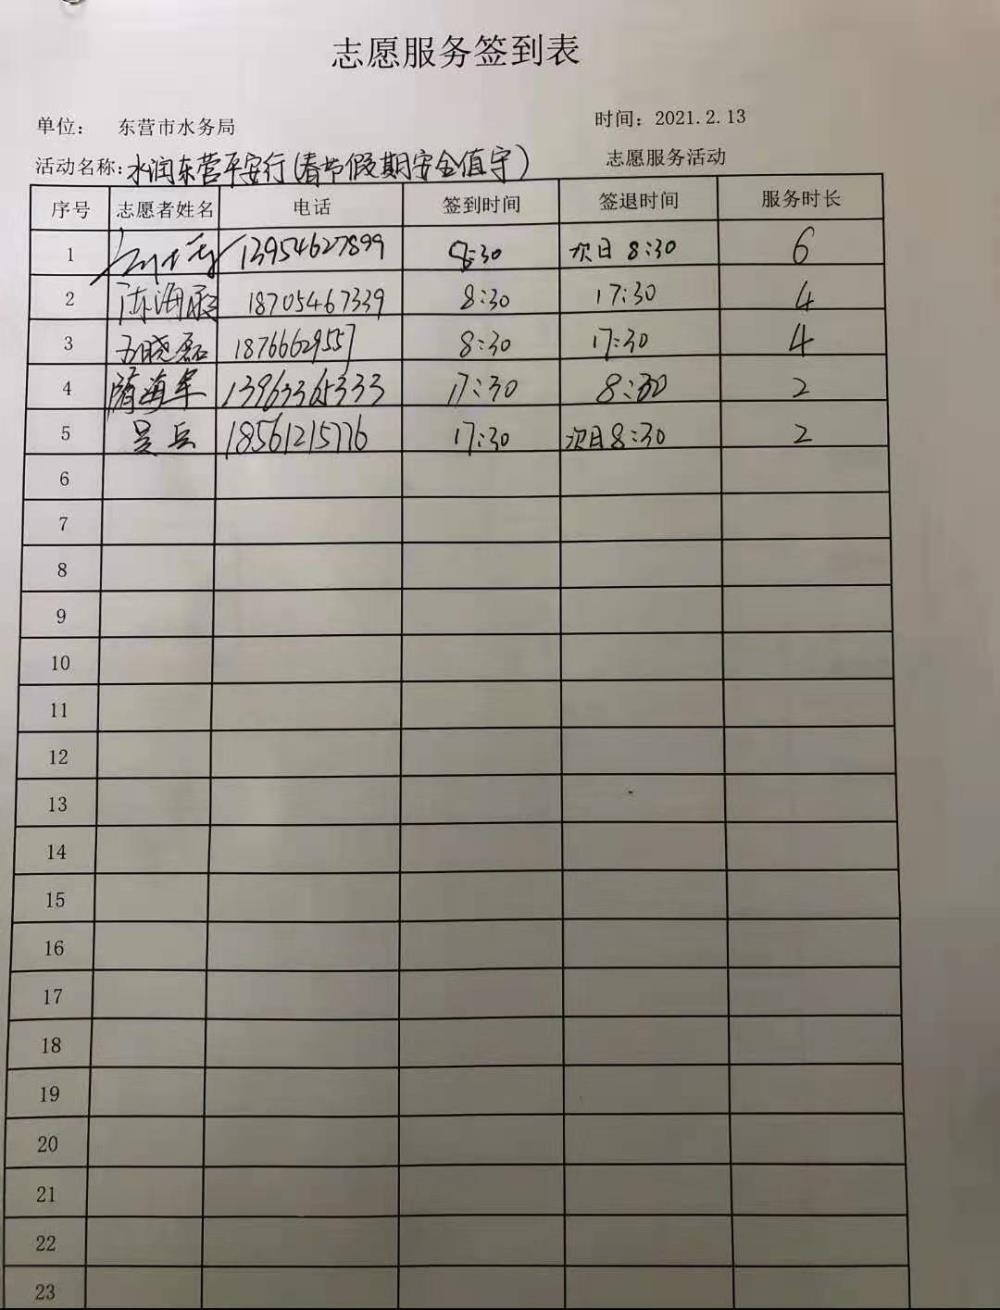 志愿服务签到表
单位： 东营市水务局 时间：2021.2.13
活动名称：水润东营平安行（春节假期安全值守） 志愿服务活动
序号 志愿者姓名 电话 签到时间 签退时间 服务时长
1 13954627899 8:30 次日 8:30 6
2 陈海 18705467339 8:30 17:30 4
3 王晓磊 18766629557 8:30 17:30 4
4 隋海军 13963365333 17:30 8:30 2
5 吴兵 18561215776 17:30 次日8:30 2
6
7
8
9
10
11
12
13
14
15
16
17
18
19
20
21
22
23